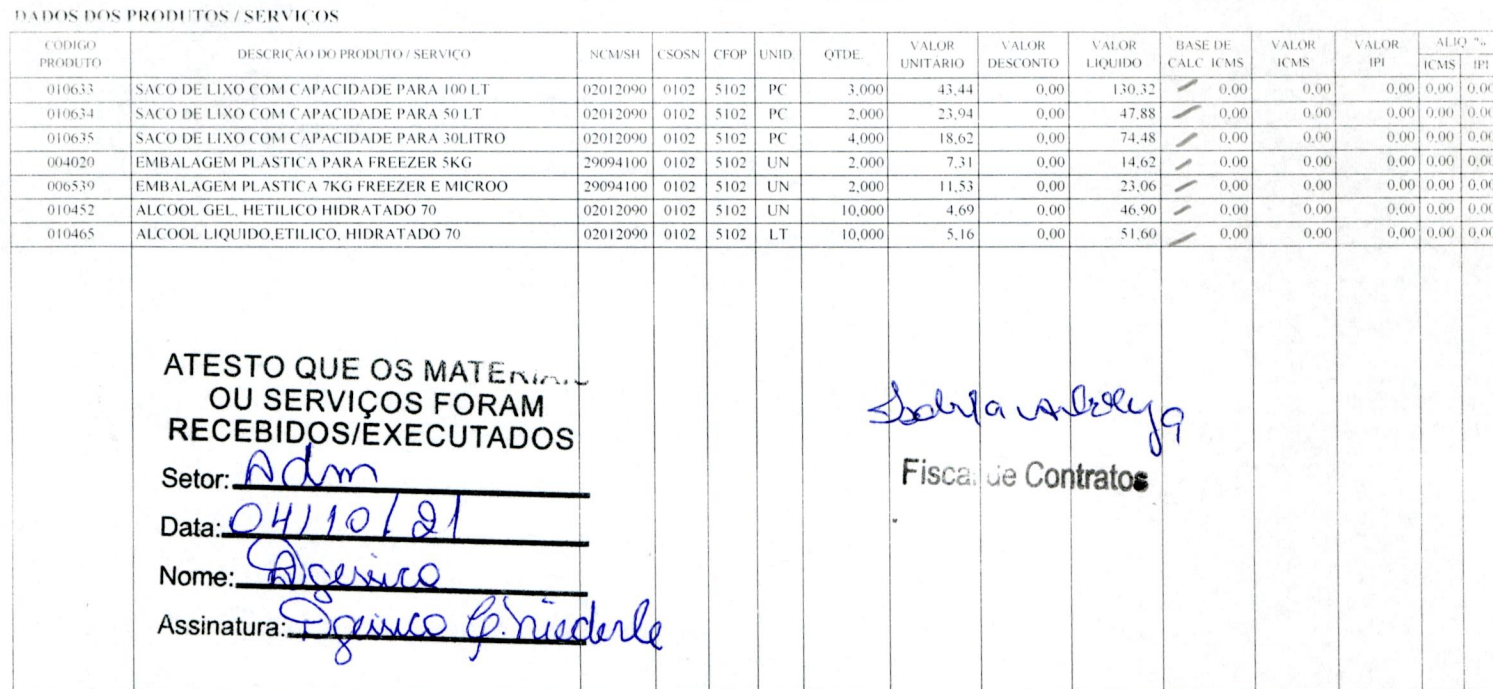 DADOS DOS PRODUTOS / SERVIÇOS
CODIGO PRODUTO DESCRIÇÃO DO PRODUTO / SERVIÇO NCM/SH CSOSN CFOP UNID QTDE. VALOR UNITARIO VALOR DESCONTO VALOR LIQUIDO BASE DE CALC ICMS VALOR ICMS VALOR IPI ALIQ % ICMS IPI
010633 SACO DE LIXO COM CAPACIDADE PARA 100 LT 02012090 0102 5102 PC 3,000 43,44 0,00 130,32 0,00 0,00 0,00 0,00 0,00
010634 SACO DE LIXO COM CAPACIDADE PARA 50 LT 02012090 0102 5102 PC 2,000 23,94 0,00 47,88 0,00 0,00 0,00 0,00 0,00
010635 SACO DE LIXO COM CAPACIDADE PARA 30LITRO 02012090 0102 5102 PC 4,000 18,62 0,00 74,48 0,00 0,00 0,00 0,00 0,00
004020 EMBALAGEM PLASTICA PARA FREEZER 5KG 29094100 0102 5102 UN 2,000 7,31 0,00 14,62 0,00 0,00 0,00 0,00 0,00
006539 EMBALAGEM PLASTICA 7KG FREEZER E MICROO 29094100 0102 5102 UN 2,000 11,53 0,00 23,06 0,00 0,00 0,00 0,00 0,00
010452 ALCOOL GEL, HETILICO HIDRATADO 70 02012090 0102 5102 UN 10,000 4,69 0,00 46,90 0,00 0,00 0,00 0,00 0,00
010465 ALCOOL LIQUIDO,ETILICO, HIDRATADO 70 02012090 0102 5102 LT 10,000 5,16 0,00 51,60 0,00 0,00 0,00 0,00 0,00
ATESTO QUE OS MATERIAIS
OU SERVIÇOS FORAM
RECEBIDOS/EXECUTADOS
Setor: Adm
Data: 04/10/21
Nome:
Assinatura:
Fiscal de Contratos